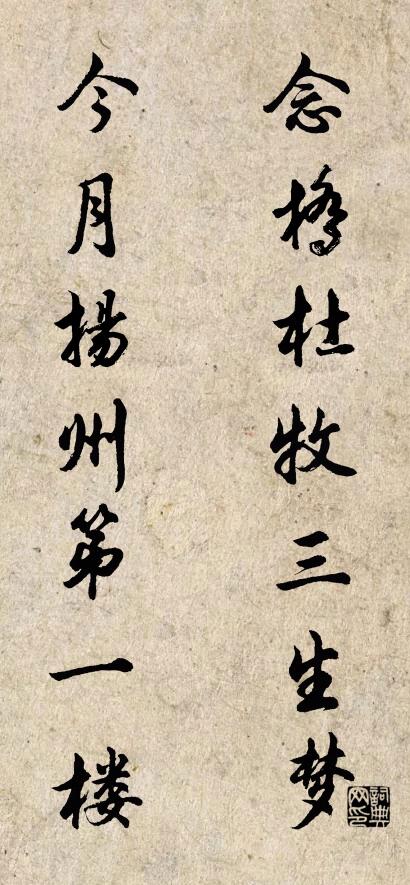 念桥杜牧三生梦
今月揚州第一楼
詞典网印